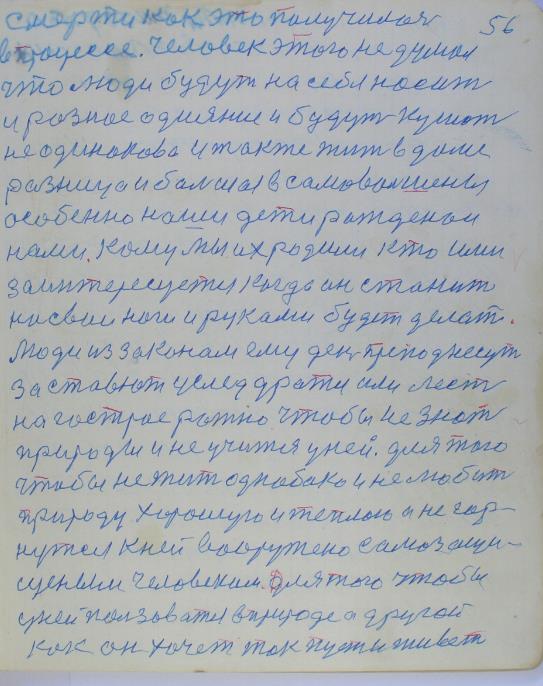 смерти как это получилоя 56
впроцессе. человек этого не думал
что люди будут на себя носит
и разное одияние и будут кушат
не одинаково и также жит в доме
разница и балшая в самоволшении
особенно наши дети рожденаи
нами. кому мы их родили кто ими
заинтересуется когда он станит
на свои ноги и руками будет делат.
люди из законам ему ден преподнесут
заставют услед драти или лест
на гострое рожно чтобы не знат
природы и не учится у ней. для того
чтобы не жит однобако и не любит
природу хорошую и теплою и не гор-
нутся к ней вооружено самозащи-
щеным человеком. для того чтобы
у ней ползоватя в природе а другой
как он хочет так пусть живет